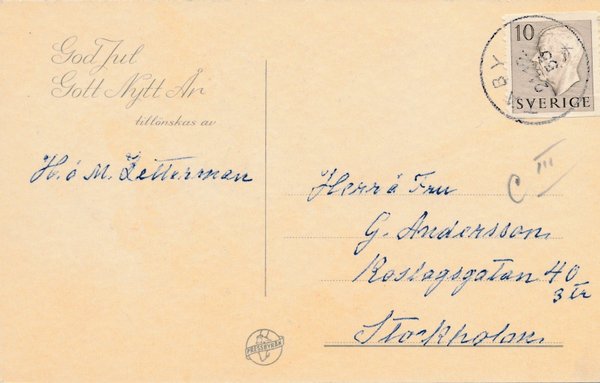 God Jul
Gott Nytt År
tillönskas av
H. ó M. Zetterman
10
SVERIGE
BY
Herr ó Fru
G. Andersson
Roslagsgatan 40
3 tr
Stockholm
C III
PRESSBYRÅN